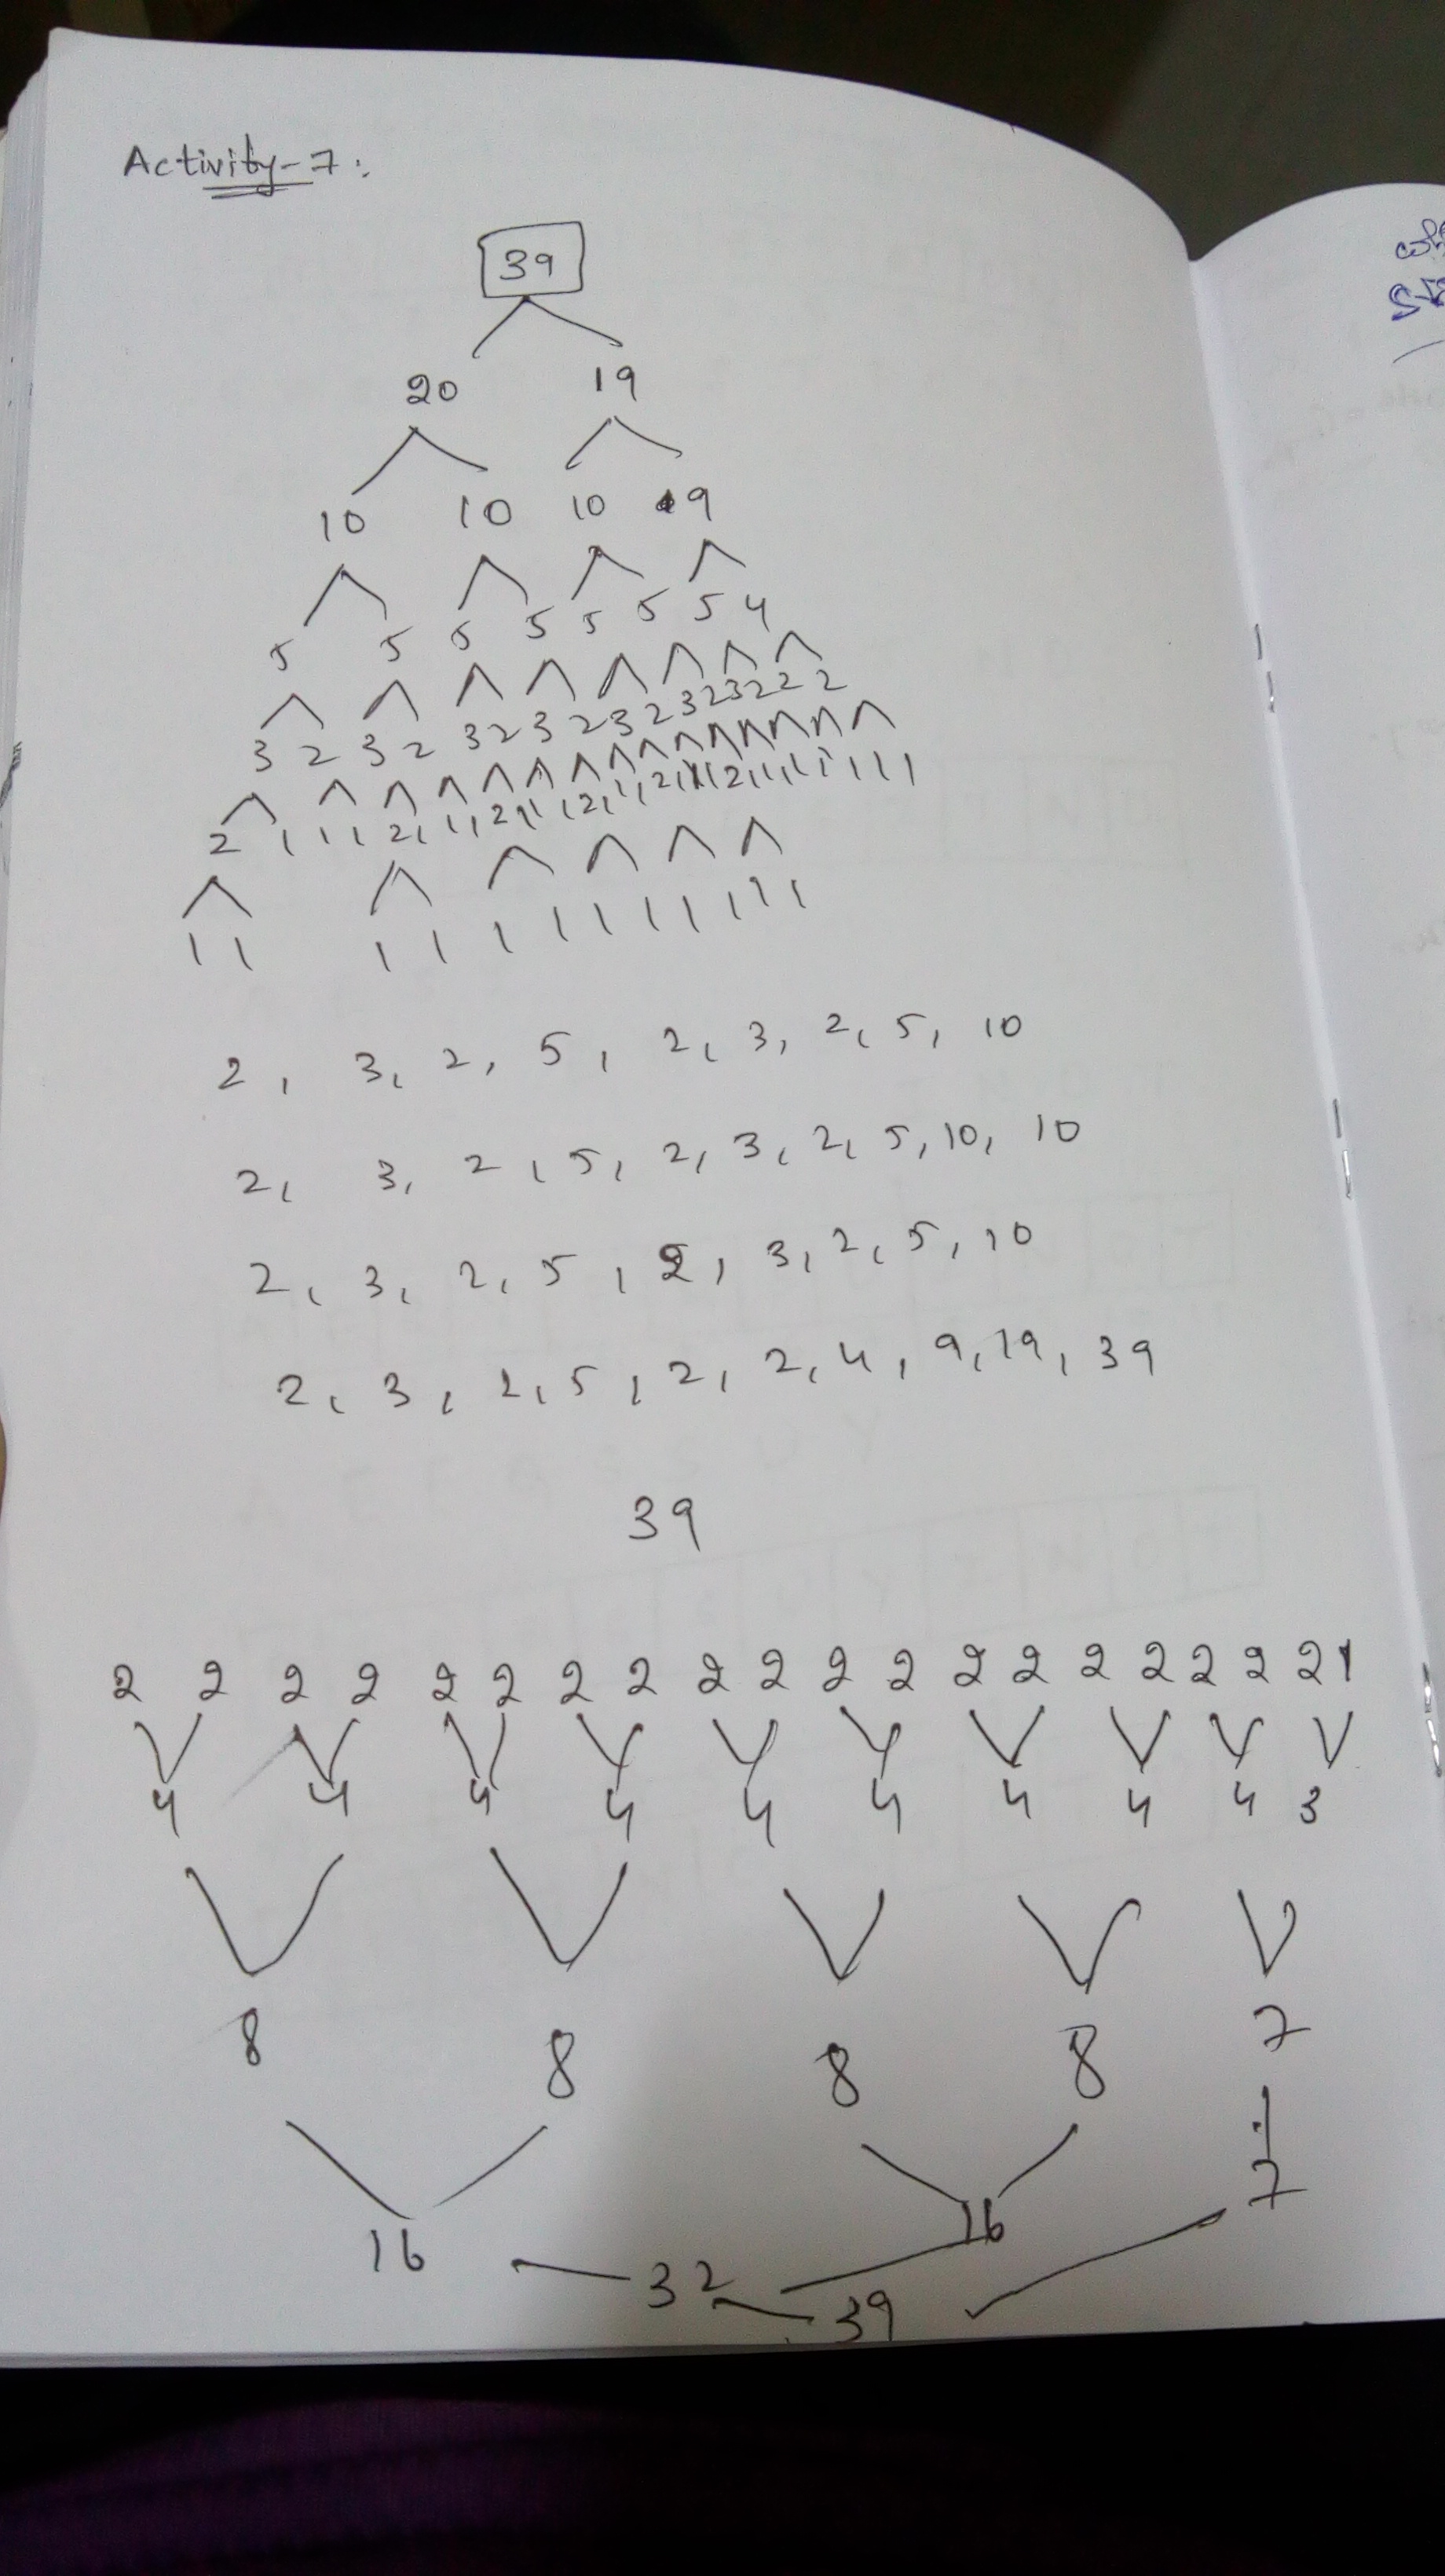 Activity-7:
39
20 19
10 10 10 9
5 5 5 5 5 5 5 4
3 2 3 2 3 2 3 2 3 2 3 2 3 2 2 2
1 1 1 1 1 1 1 1 1 1 1 1
2, 3, 2, 5, 2, 3, 2, 5, 10
2, 3, 2, 5, 2, 3, 2, 5, 10, 10
2, 3, 2, 5, 2, 3, 2, 5, 10
2, 3, 2, 5, 2, 2, 4, 9, 19, 39
39
2 2 2 2 2 2 2 2 2 2 2 2 2 2 2 2 2 2 2 1
4 4 4 4 4 4 4 4 4 3
8 8 8 8 7
7
16 16
32
39